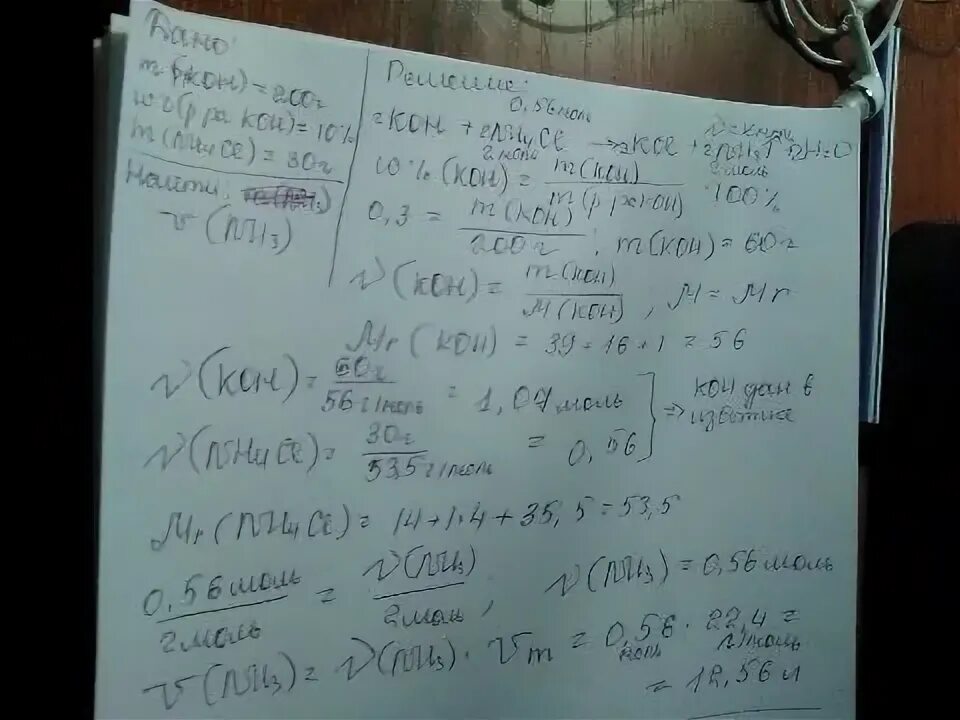 Дано:
m (KOH) = 200г
ω (р-ра KOH) = 10%
m (NH4Cl) = 30г
Найти:
V (NH3)
Решение:
0,56 моль
2KOH + 2NH4Cl → 2KCl + 2NH3↑ + 2H2O
2 моль 2 моль
10% (KOH) = m(KOH) / m(р-ра KOH) 100%
0,3 = m(KOH) / 200г ; m(KOH) = 60г
ν (KOH) = m(KOH) / M(KOH) , M = Mr
Mr (KOH) = 39 + 16 + 1 = 56
ν (KOH) = 60г / 56 г/моль = 1,07 моль
ν (NH4Cl) = 30г / 53,5 г/моль = 0,56
⇒ KOH дан в
избытке
Mr (NH4Cl) = 14 + 1·4 + 35,5 = 53,5
0,56 моль / 2 моль = ν(NH3) / 2 моль ; ν (NH3) = 0,56 моль
V (NH3) = ν(NH3) · Vm = 0,56 моль · 22,4 л/моль =
= 12,56 л